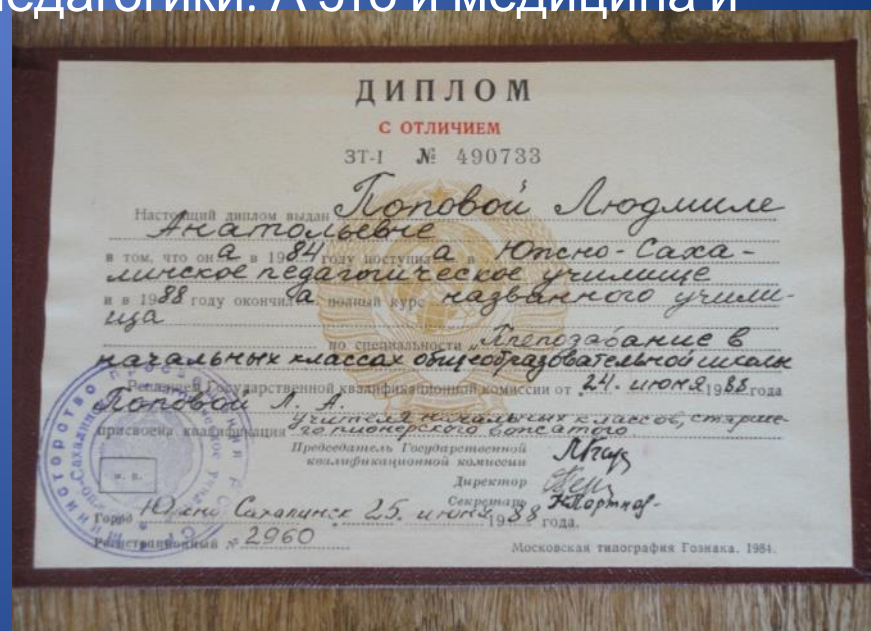 едагогики. А это и медицина и
ДИПЛОМ
С ОТЛИЧИЕМ
ЗТ-I № 490733
Настоящий диплом выдан Поповой Людмиле
Анатольевне
в том, что она в 1984 году поступила в Южно-Саха-
линское педагогическое училище
и в 1988 году окончила полный курс названного учили-
ща
по специальности „Преподавание в
начальных классах общеобразовательной школы
Решением Государственной квалификационной комиссии от 24. июня 1988 года
Поповой Л. А.
присвоена квалификация учителя начальных классов, старше-
го пионерского вожатого.
Председатель Государственной
квалификационной комиссии
Директор
Секретарь
Город Южно-Сахалинск 25. июня 1988 года.
Регистрационный № 2960
м. п.
Московская типография Гознака. 1984.